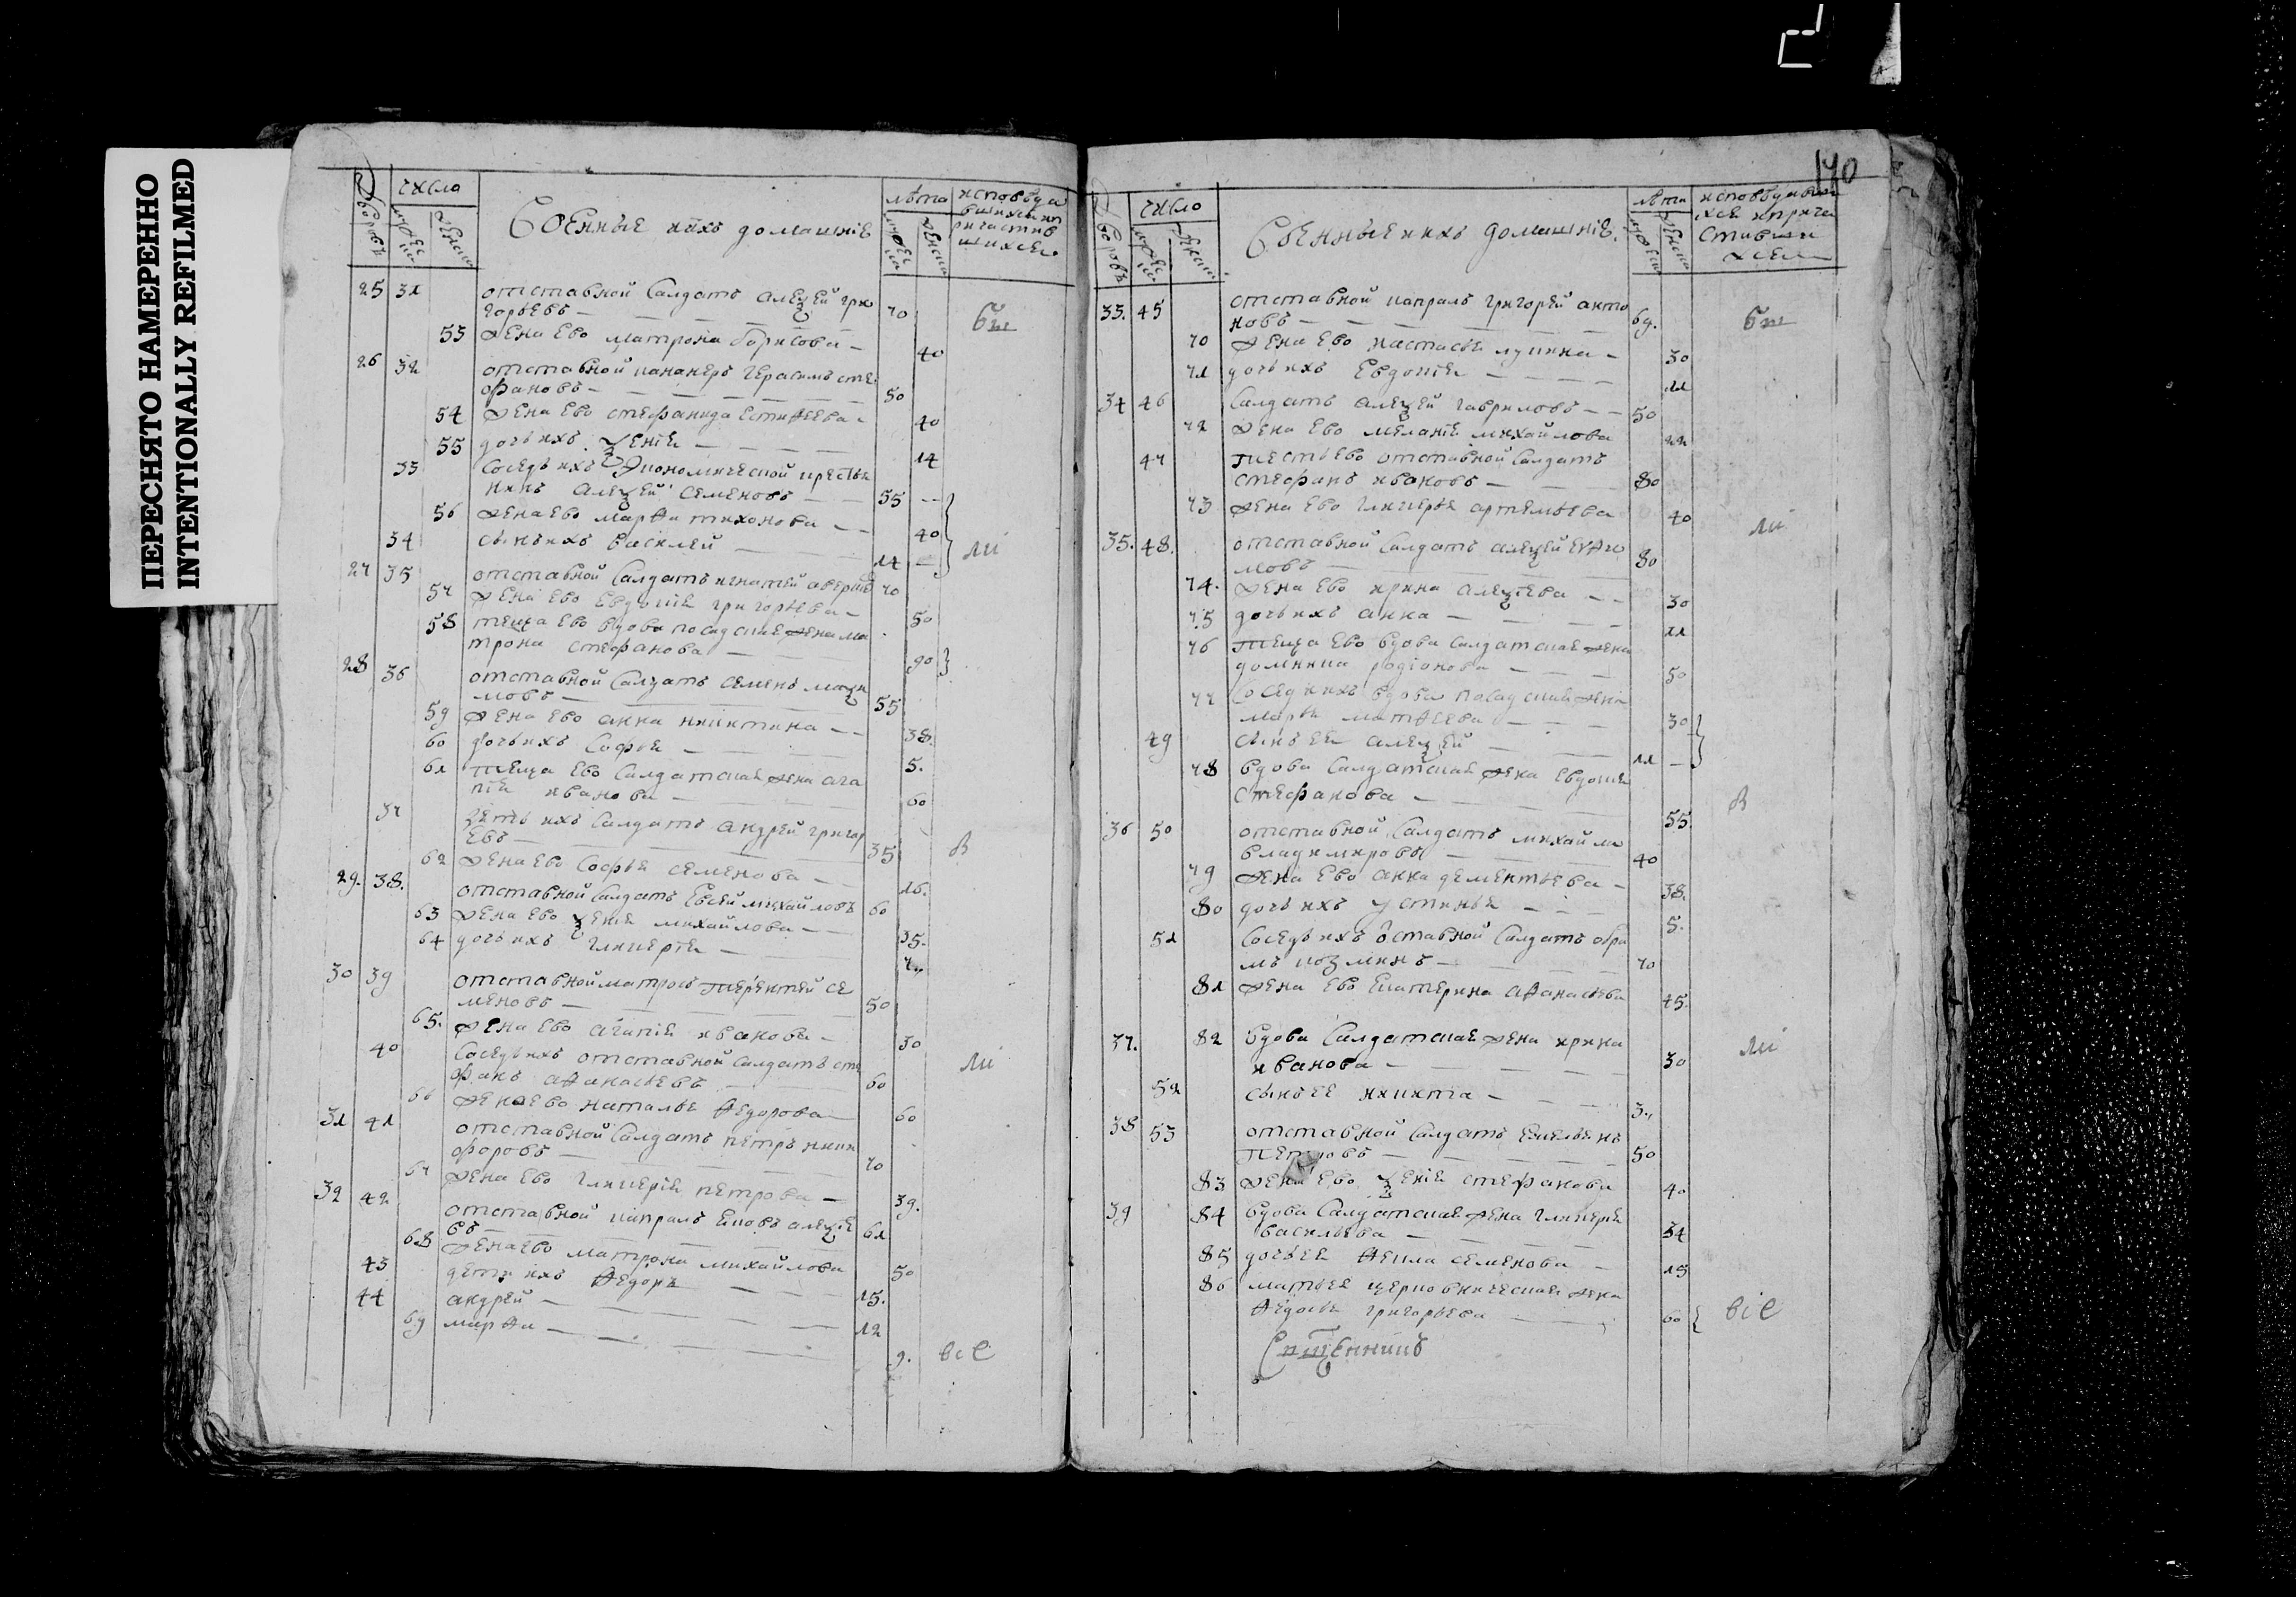 ПЕРЕСНЯТО НАМЕРЕННО
INTENTIONALLY REFILMED
число
Военные ихъ домашнїе
лѣта
25 31 отставной Салдатъ алеѯей гри
горьевъ — 70
бы
53 жена ево матрона борисова — 40
26 32 отставной канонеръ герасимъ сте
фановъ — 50
54 жена ево стефанида 40
55 дочь ихъ ѯенїя — 14
33 Соседъ ихъ экономической крестья
нинъ алеѯей семеновъ — 55
56 жена ево марѳа тихонова — 40
34 сынъ ихъ василей — 14
ли
27 35 отставной Салдатъ игнатей 70
57 жена ево евдокїя григорьева — 50
58 теща ево вдова посадская жена ма
трона стефанова — 90
28 36 отставной Салдатъ семенъ маѯи
мовъ — 55
59 жена ево анна никитина — 38.
60 дочь ихъ Софья — 5.
61 теща ево Салдатская жена ага
пїя иванова — 60
37 зять ихъ Салдатъ андрей григор
евъ — 35
в
62 жена ево Софья семенова — 16.
29. 38. отставной Салдатъ Евсей михайловъ 60
63 жена ево ѯенїя михайлова — 35.
64 дочь ихъ гликерїя — 7.
30 39 отставной матросъ терентей се
меновъ — 50
65. жена ево агапїя иванова — 30
40 Соседъ ихъ отставной салдатъ сте
фанъ аѳанасьевъ — 60
ли
66 жена ево наталья ѳедорова — 60
31 41 отставной Салдатъ петръ ники
форовъ — 70
67 жена ево гликерїя петрова — 39.
32 42 отставной капралъ яковъ алеѯїе
въ — 61
68 жена ево матрона михайлова 50
43 дети ихъ ѳедоръ — 15.
44 андрей — 12
69 марѳа — 9.
все
140
число
Военные ихъ домашнїе.
лѣта
33. 45 отставной капралъ григорей анто
новъ — 69.
бы
70 жена ево настасья лукина — 30
71 дочь ихъ Евдокїя — 11
34 46 Салдатъ алеѯей гавриловъ — 50
72 жена ево меланїя михайлова 22
47 тесть ево отставной Салдатъ
стефанъ ивановъ — 80
73 жена ево гликерья артемьева 40
ли
35. 48. отставной Салдатъ алеѯей
мовъ — 80
74. жена ево ирина алеѯїева — 30
75 дочь ихъ анна — 11
76 теща ево вдова Салдатская жена
домника родїонова — 50
77 Соседка ихъ вдова посадская жена
марья матѳеева — 30
49 сынъ ея алеѯей — 11
78 вдова Салдатская жена евдокїя
стефанова — 55.
в
36 50 отставной Салдатъ михайла
владимировъ — 40
79 жена ево анна дементьева — 38.
80 дочь ихъ устинья — 5.
51 Соседъ ихъ оставной Салдатъ абра
мъ козминъ — 70
81 жена ево Екатерина аѳанасьева 45.
37. 82 вдова Салдатская жена ирина
иванова — 30
ли
52 сынъ ее никита — 3.
38 53 отставной Салдатъ Емельянъ
петровъ — 50
83 жена ево ѯенїя стефанова 40
39 84 вдова Салдатская жена гликерья
васильева — 34
85 дочь ея ѳекла семенова — 15
86 мать ея церковническая жена
ѳедосья григорьева 60
все
Сщенникъ